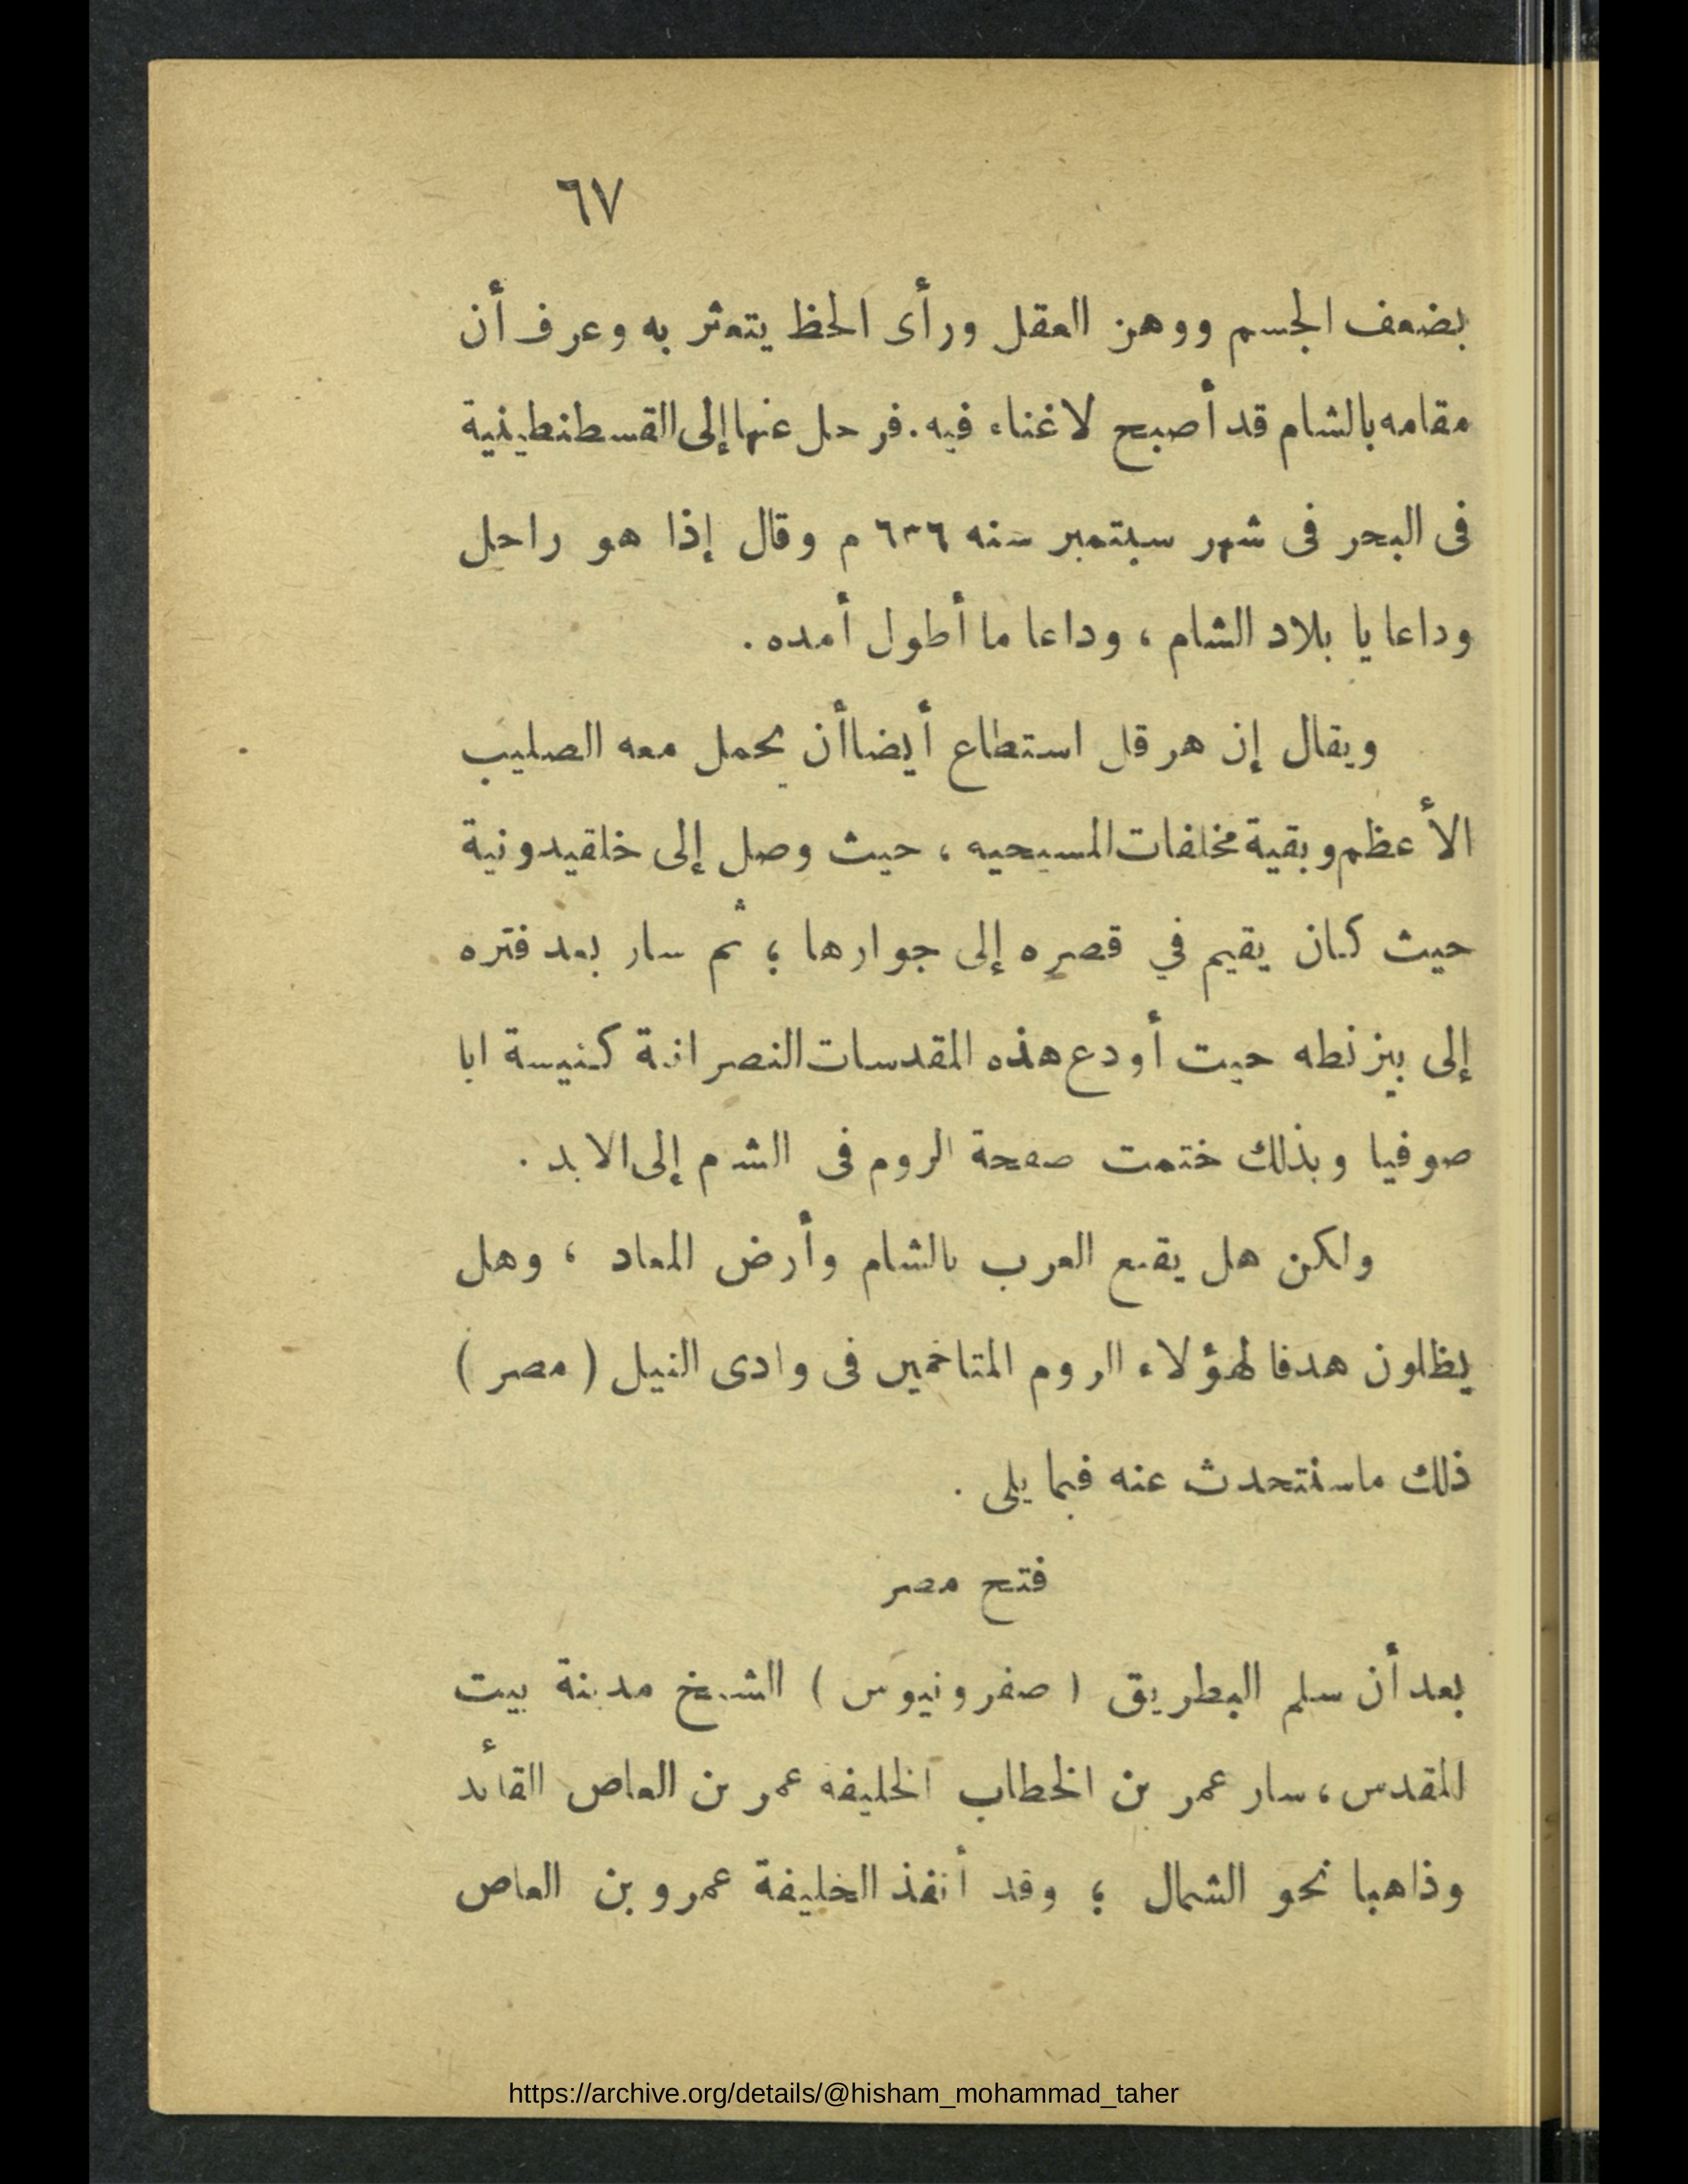 ٦٧
بضعف الجسم ووهن العقل ورأى الحظ يتعثر به وعرف أن
مقامه بالشام قد أصبح لا غناء فيه . فرحل عنها إلى القسطنطينية
فى البحر فى شهر سبتمبر سنه ٦٣٦ م وقال إذا هو راحل
وداعا يا بلاد الشام ، وداعا ما أطول أمده .
ويقال إن هرقل استطاع أيضا أن يحمل معه الصليب
الأعظم وبقية مخلفات المسيحيه ، حيث وصل إلى خلقيدونية
حيث كان يقيم في قصره إلى جوارها ؛ ثم سار بعد فتره
إلى بيزنطه حيت أودع هذه المقدسات النصرانية كنيسة ايا
صوفيا وبذلك ختمت صفحة الروم فى الشام إلى الابد .
ولكن هل يقنع العرب بالشام وأرض المعاد ، وهل
يظلون هدفا لهؤلاء الروم المتاخمين فى وادى النيل ( مصر )
ذلك ما سنتحدث عنه فيما يلى .
فتح مصر
بعد أن سلم البطريق ( صفرونيوس ) الشيخ مدينة بيت
المقدس ، سار عمر بن الخطاب الخليفه عمر بن العاص القائد
وذاهبا نحو الشمال ؛ وقد أنفذ الخليفة عمرو بن العاص
https://archive.org/details/@hisham_mohammad_taher